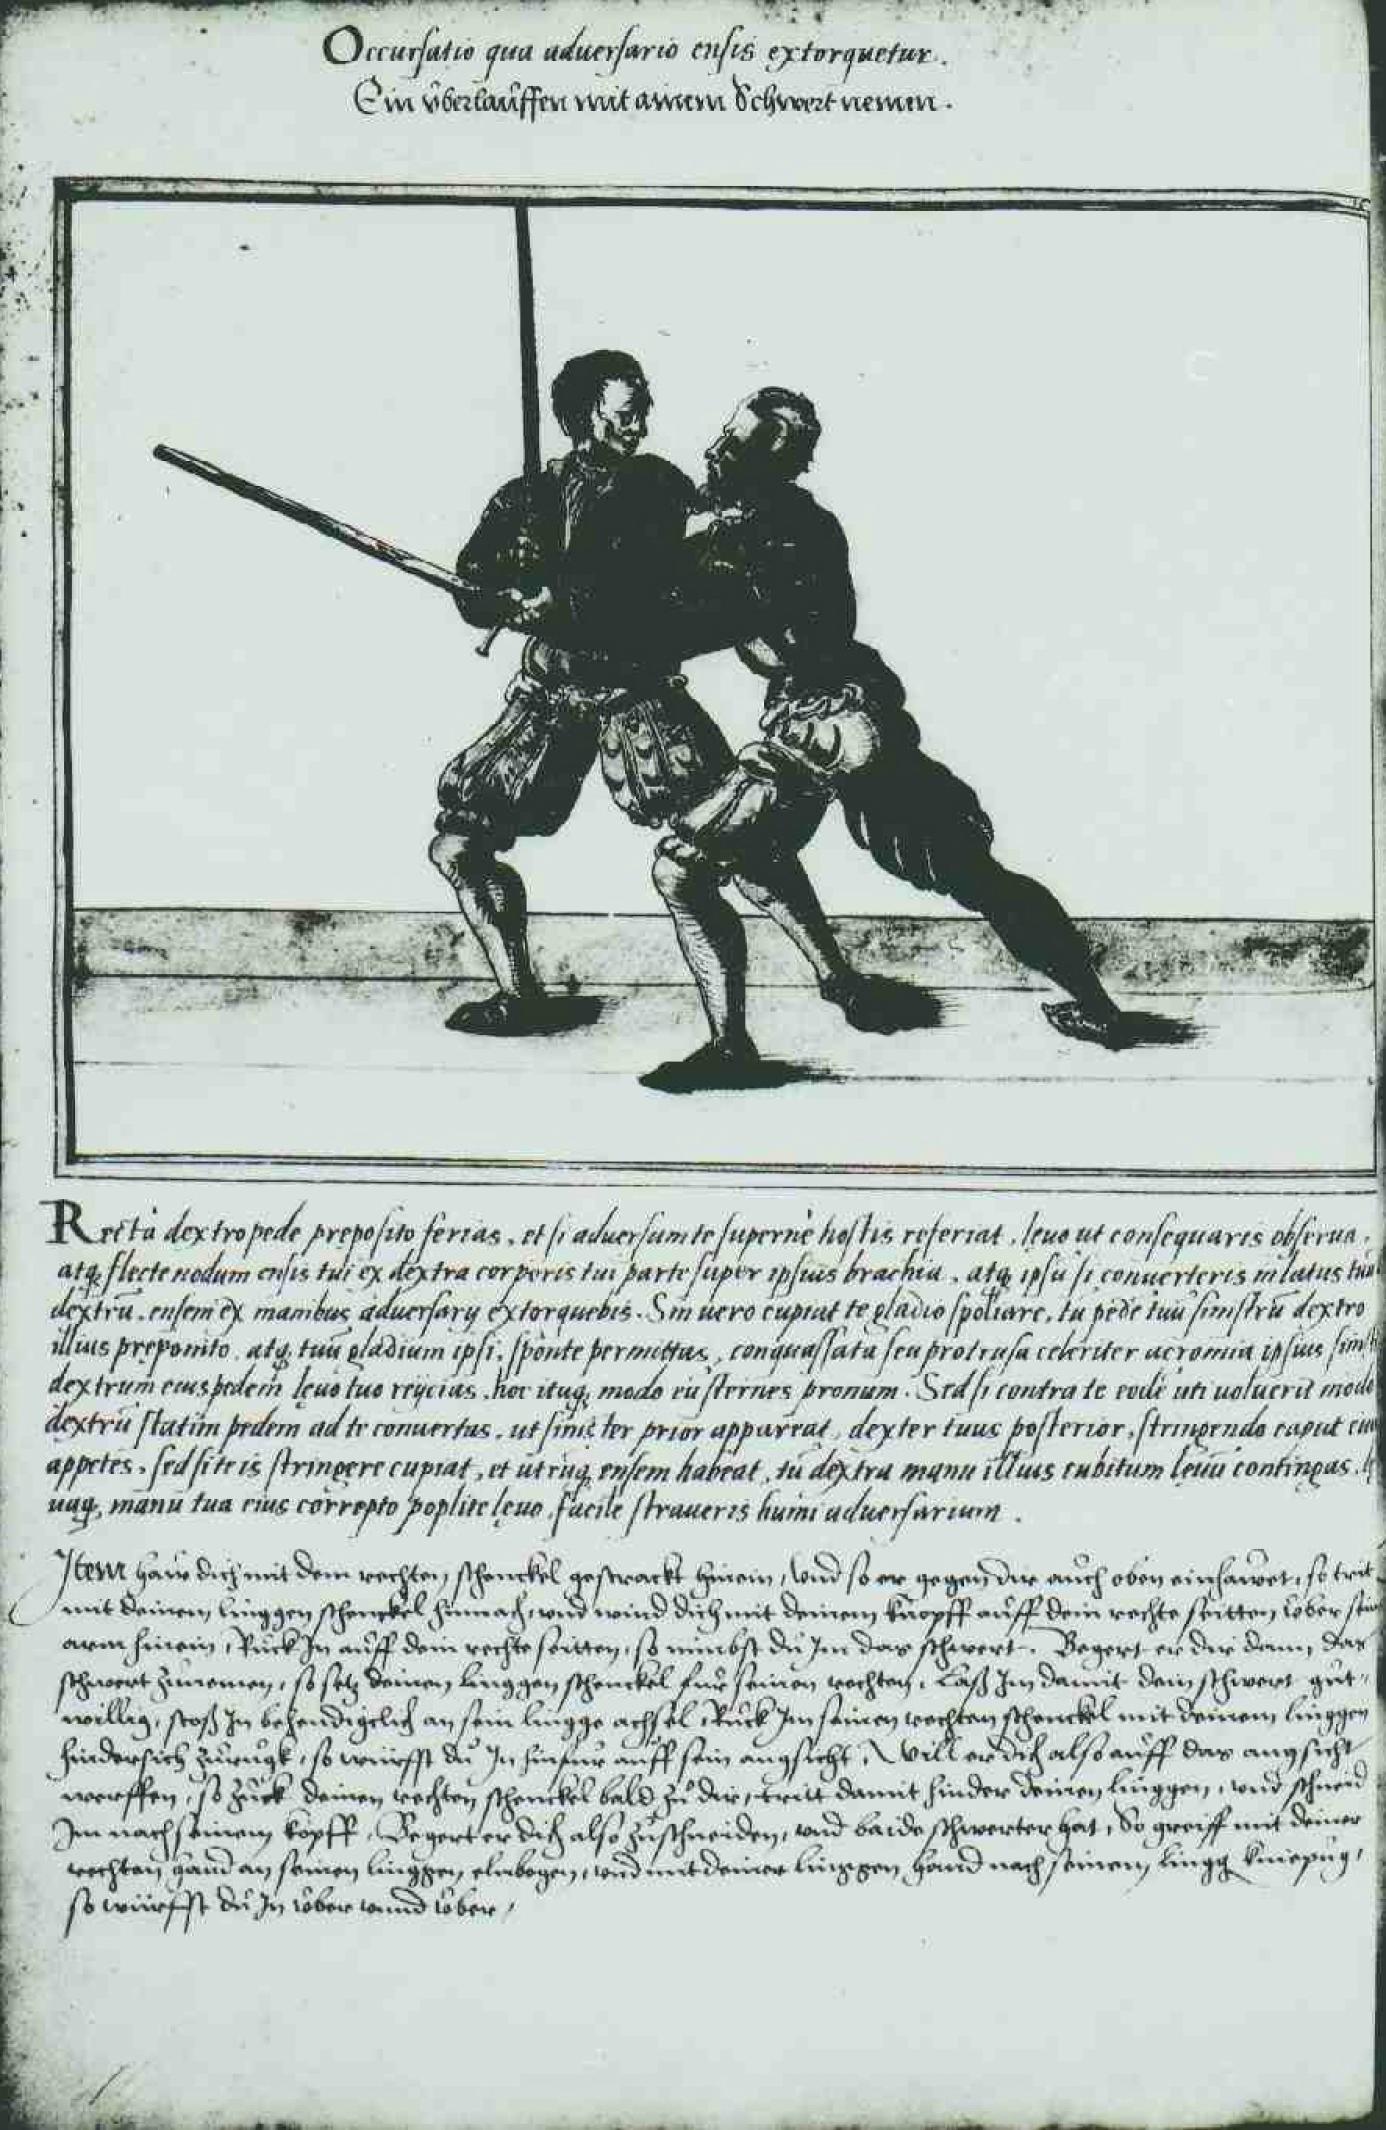 Occursatio qua adversario ensis extorquetur.
Ein v̊berlauffen mit ainem Schwert nemen.
Recta dextro pede pręposito ferias, et si adversum te supernè hostis referiat, lęuo ut consequaris obserua,
atq; flecte nodum ensis tui ex dextra corporis tui parte super ipsius brachia, atq; ipsū si converteris in latus tuū
dextrū, ensem ex manibus adversarij extorquebis. Sin uero cupiat te gladio spoliare, tu pedē tuū sinistrū dextro
illius pręponito, atq; tuū gladium ipsi, sponte permittas, conquassata seu protrusa celeriter acromia ipsius
dextrum eius pedem lęuo tuo reijcias, hoc itaq; modo eū sternes pronum. Sed si contra te eodē uti uoluerit modo
dextrū statim pedem ad te conuertas, ut sinister prior appareat, dexter tuus posterior, stringendo caput
appetes, sed si te is stringere cupiat, et utrūq; ensem habeat, tū dextra manu illius cubitum lęuū contingas,
uaq; manu tua eius correpto poplite lęuo, facile straueris humi aduersarium.
Item haw dich mit dem rechten schenckel gestrackt hinein, vnd so er gegen dir auch oben einhawet, so trit
mit deinem linggen schenckel hinnach, vnd wind dich mit deinem knopff auff dein rechte seitten v̊ber sein
arm hinein, Ruck In auff dein rechte seitten, so nimbst du Im das schwert. Begert er dir dann, das
schwert zunemen, so setz deinen linggen schenckel fur seinen rechten, Laß Im damit dein schwert gut-
willig, stoß In behendigclich an sein lingge achsel, Ruck Im seinen rechten schenckel mit deinem linggen
hindersich zurugk, so wurffst du In hinfur auff sein angsicht, Will er dich also auff das angsicht
werffen, so zuck deinen rechten schenckel bald zu dir, tritt damit hinder deinen linggen, vnd schneid
Im nach seinem kopff, Begert er dich also zuschneiden, vnd baide schwerter hat, So greiff mit deiner
rechten hand an seinen linggen elnbogen, vnd mit deiner linggen hand nach seinem lingg kniepug,
so wurffst du In v̊ber vnnd v̊ber,